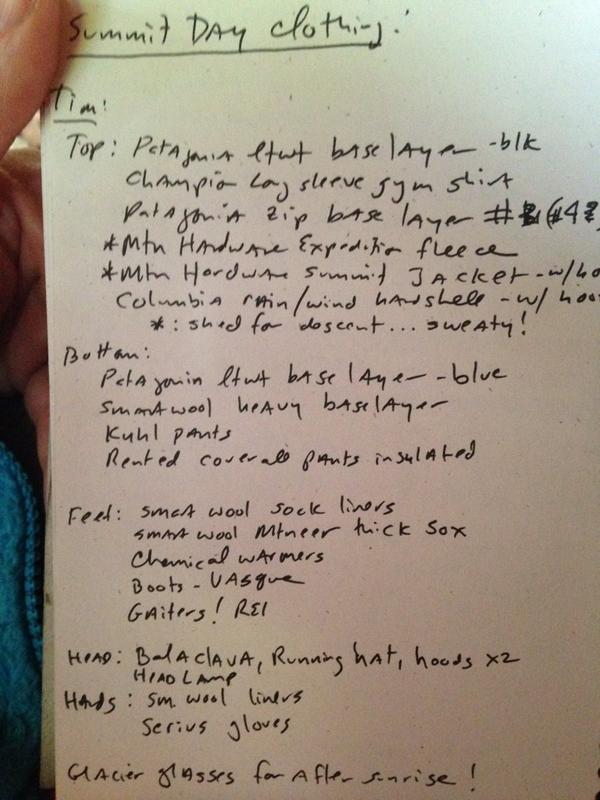 Summit Day Clothing:
Tim:
Top: Patagonia ltwt base layer - blk
Champion long sleeve gym shirt
Patagonia zip base layer
*Mtn Hardware Expedition fleece
*Mtn Hardware Summit Jacket - w/ho
Columbia rain/wind hardshell - w/ hoo
*: shed for descent... sweaty!
Bottom:
Patagonia ltwt base layer - blue
Smartwool heavy baselayer
Kuhl pants
Rented coverall pants insulated
Feet: smart wool sock liners
smart wool Mtneer thick sox
Chemical warmers
Boots - Vasque
Gaiters! REI
Head: Balaclava, Running hat, hoods x2
Head Lamp
Hands: sm. wool liners
Serius gloves
Glacier glasses for After sunrise!